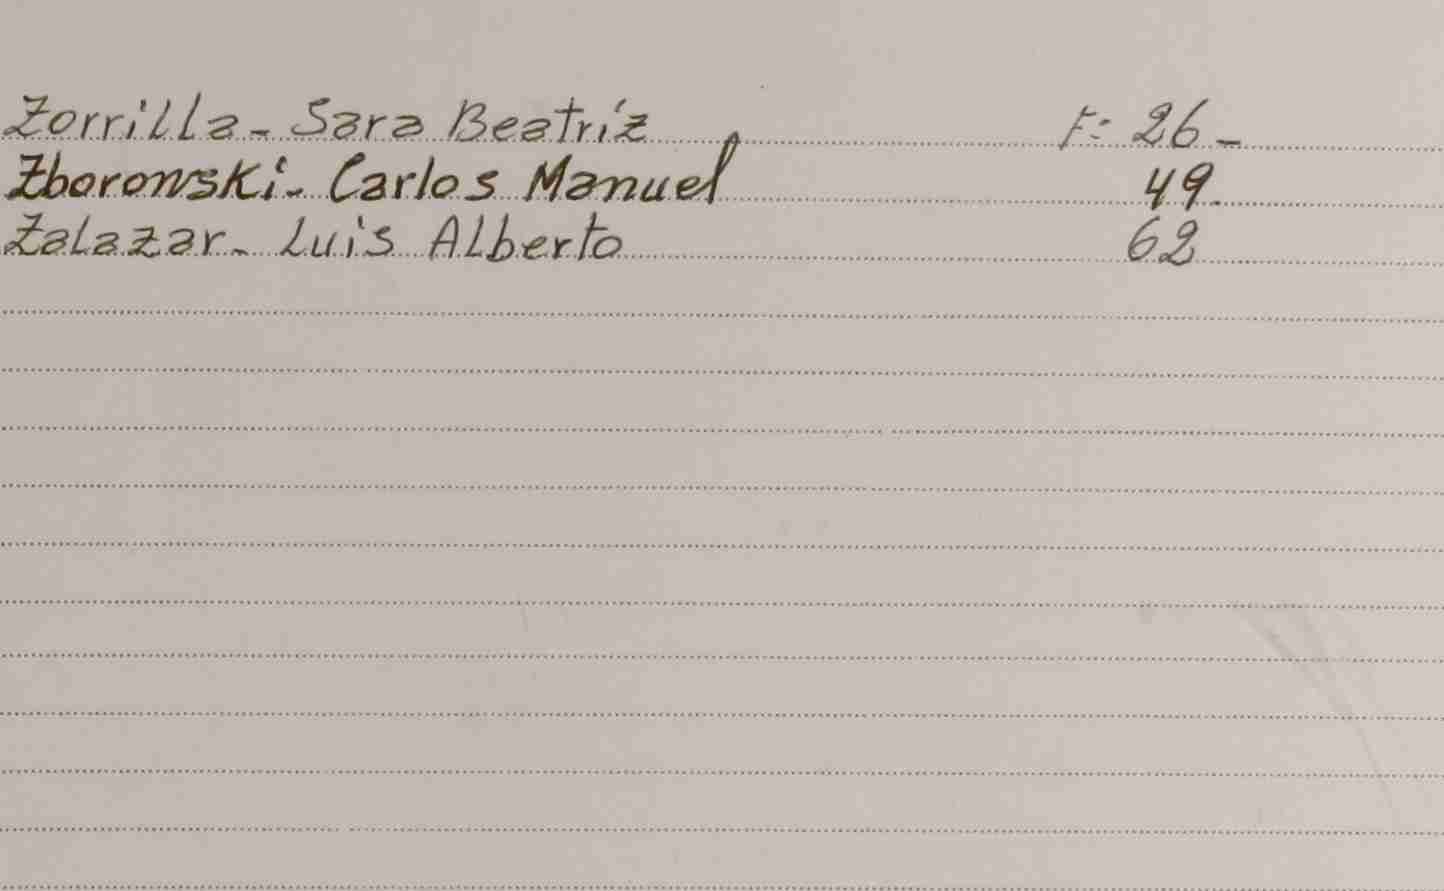 Zorrilla - Sara Beatríz F: 26 -
Zboronski - Carlos Manuel 49.
Zalazar - Luis Alberto 62